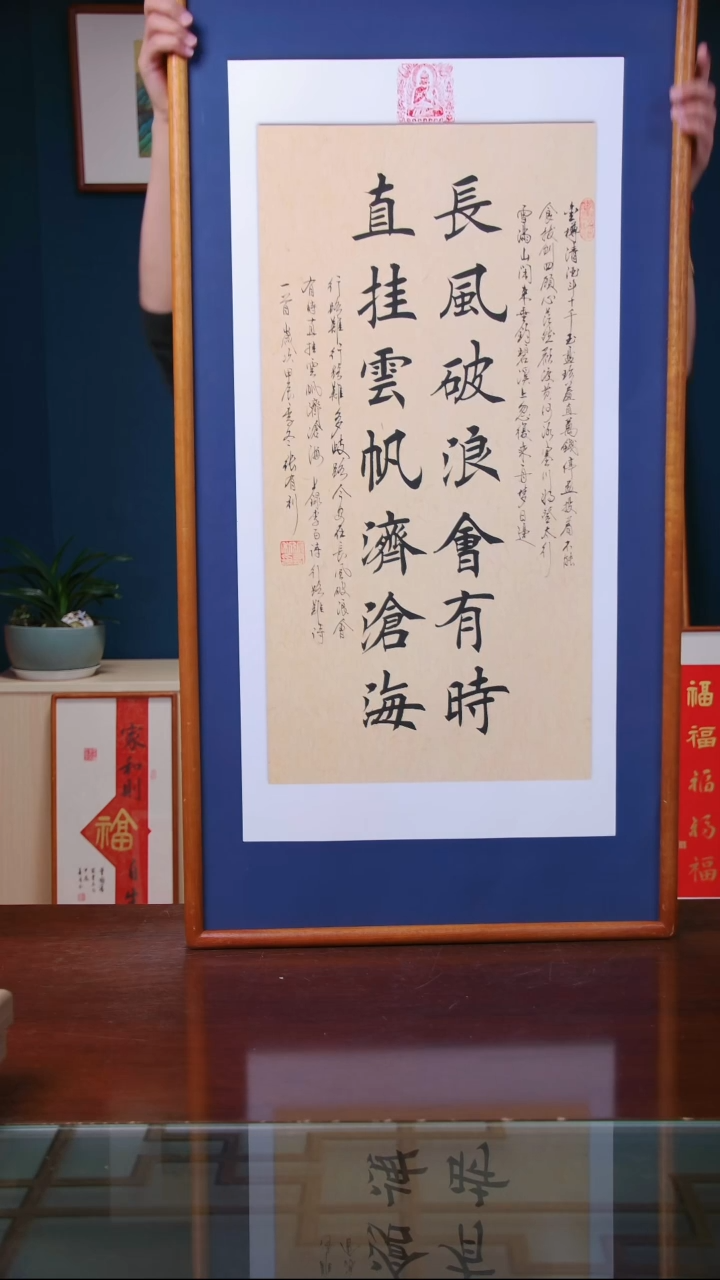 金樽清酒斗十千玉盤珍羞直萬錢停盃投箸不能
食拔劍四顧心茫然欲渡黃河冰塞川將登太行
雪滿山閑來垂釣碧溪上忽復乘舟夢日邊
長風破浪會有時
直挂雲帆濟滄海
行路難行路難多岐路今安在長風破浪會
有時直挂雲帆濟滄海上錄李白詩行路難詩
一首歲次甲辰季冬張有利
家和則
福
自生
福福福福福